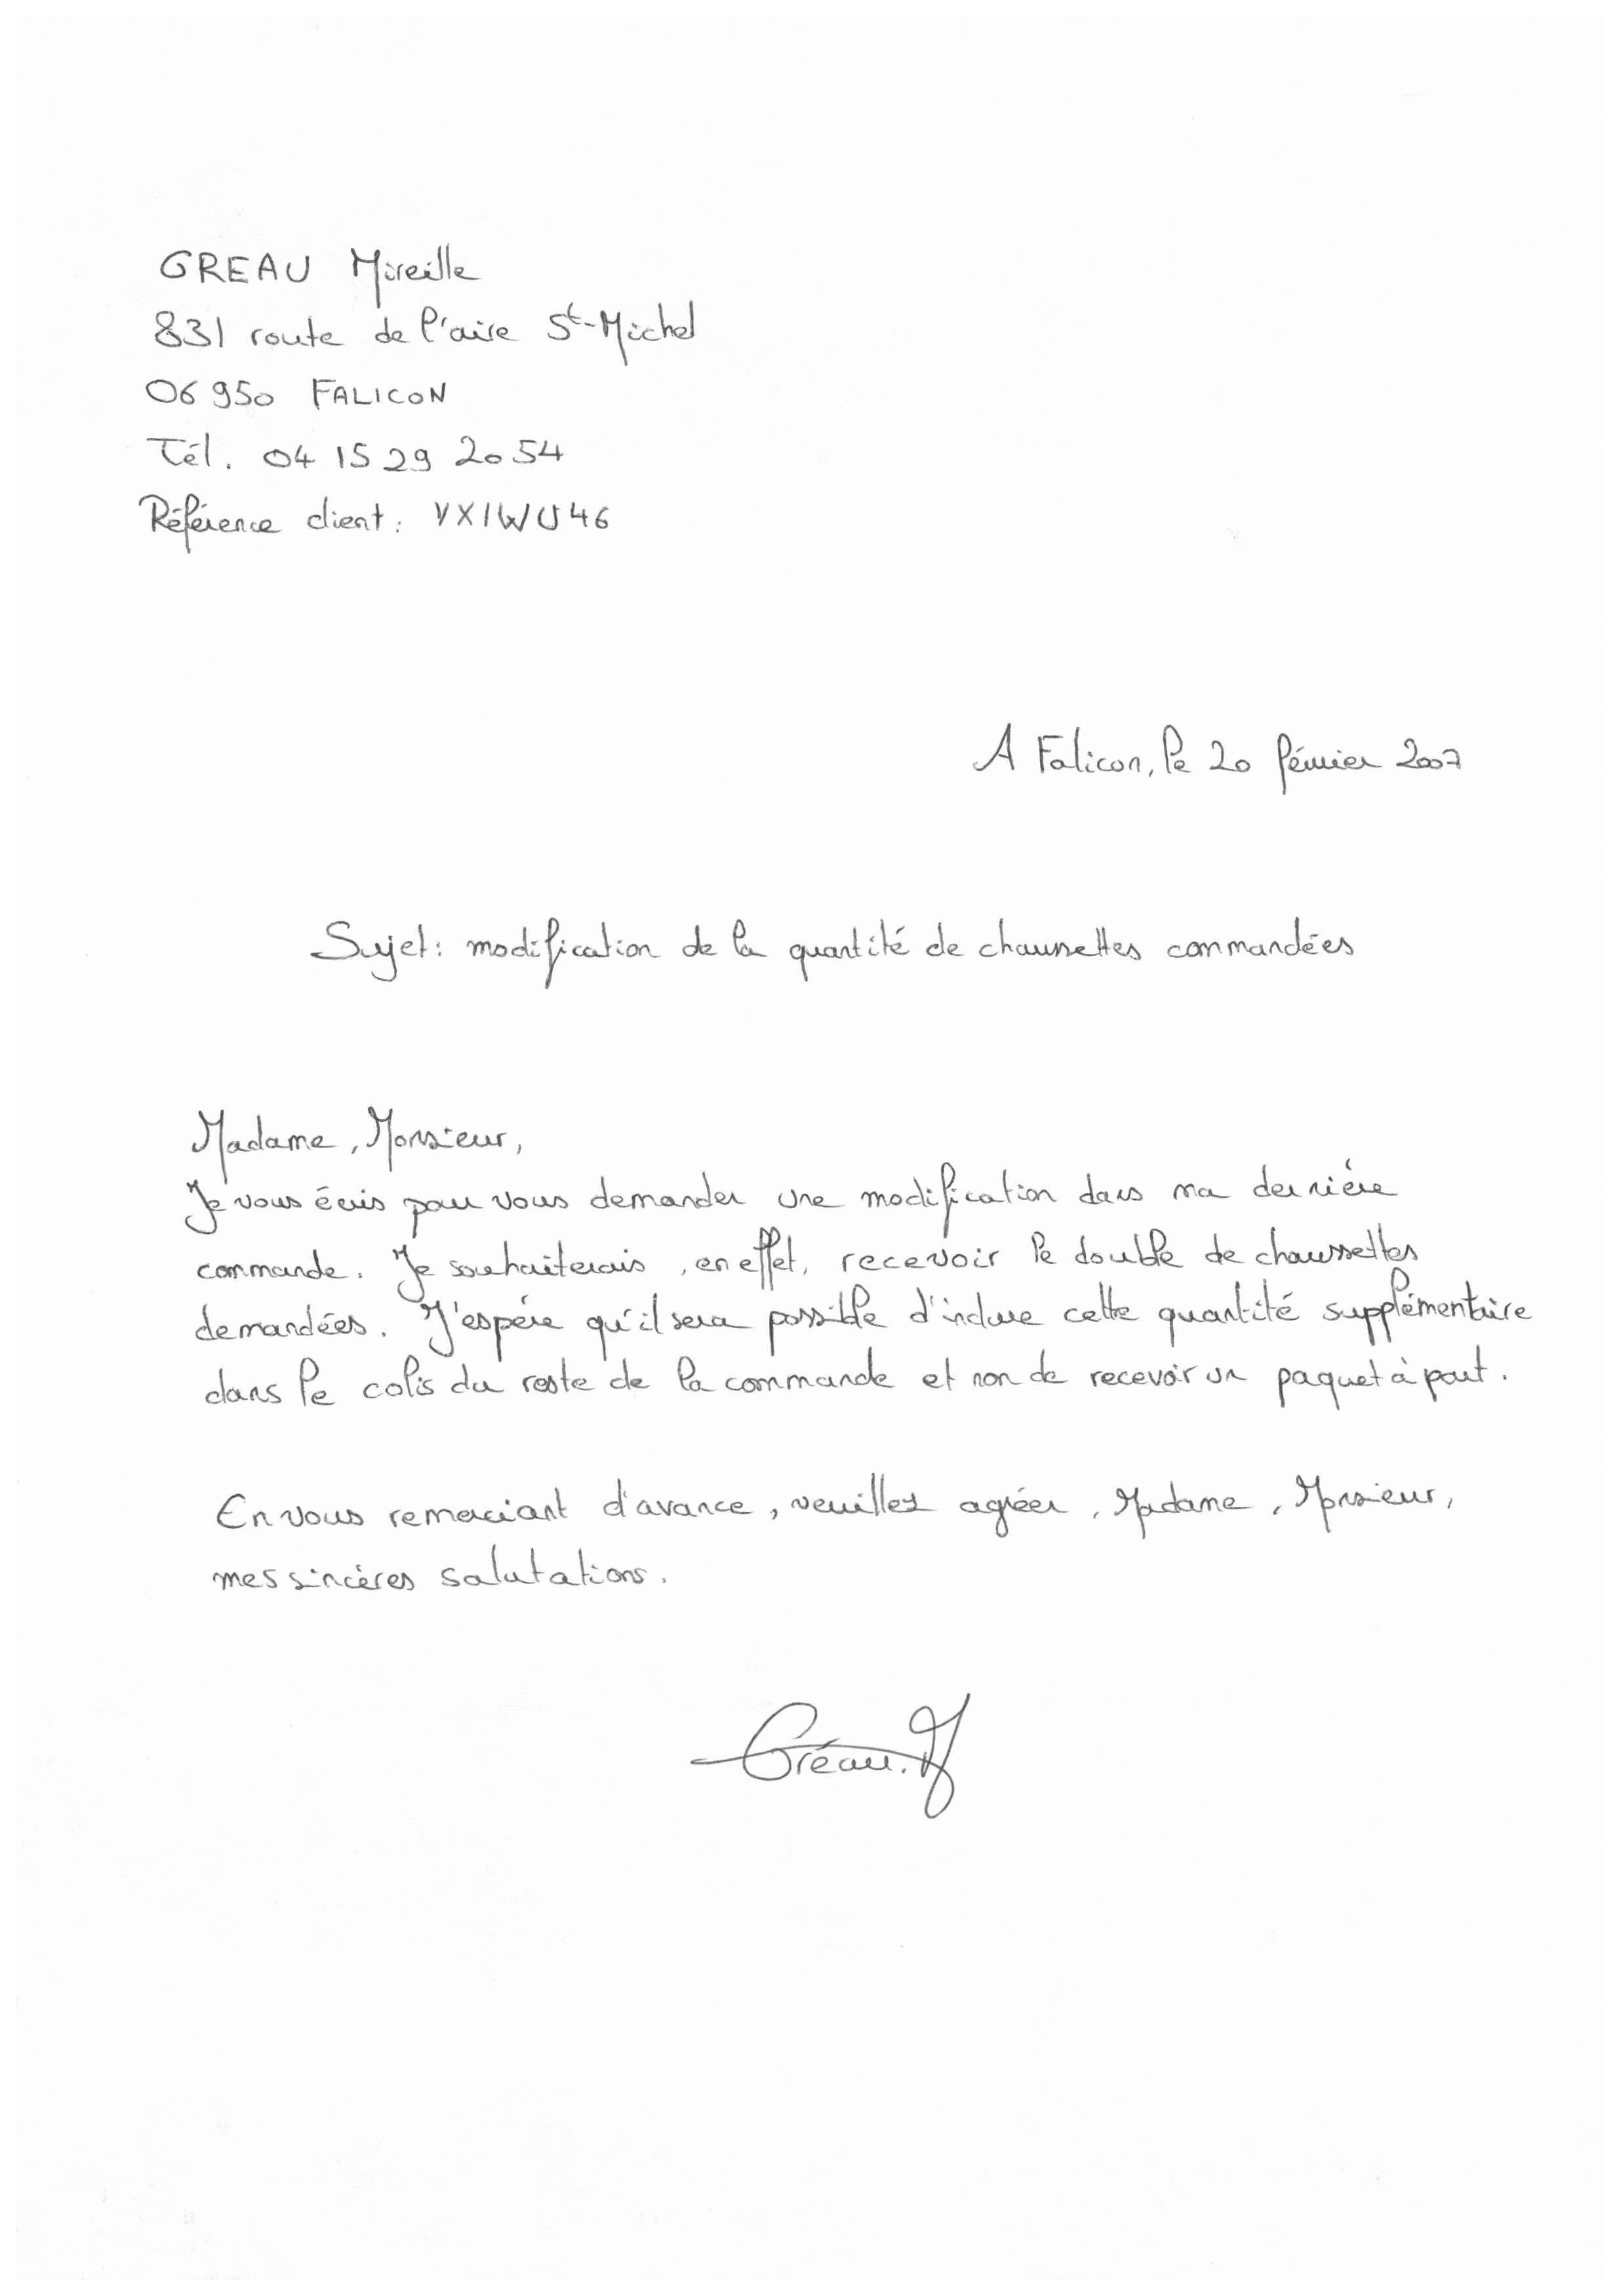 GREAU Mireille
831 route de l'aire St-Michel
06 950 FALICON
Tél. 04 15 29 20 54
Référence client : VXIWU46
A Falicon, le 20 février 2007
Sujet : modification de la quantité de chaussettes commandées
Madame, Monsieur,
Je vous écris pour vous demander une modification dans ma dernière
commande. Je souhaiterais, en effet, recevoir le double de chaussettes
demandées. J'espère qu'il sera possible d'inclure cette quantité supplémentaire
dans le colis du reste de la commande et non de recevoir un paquet à part.
En vous remerciant d'avance, veuillez agréer, Madame, Monsieur,
mes sincères salutations.
Gréau. M